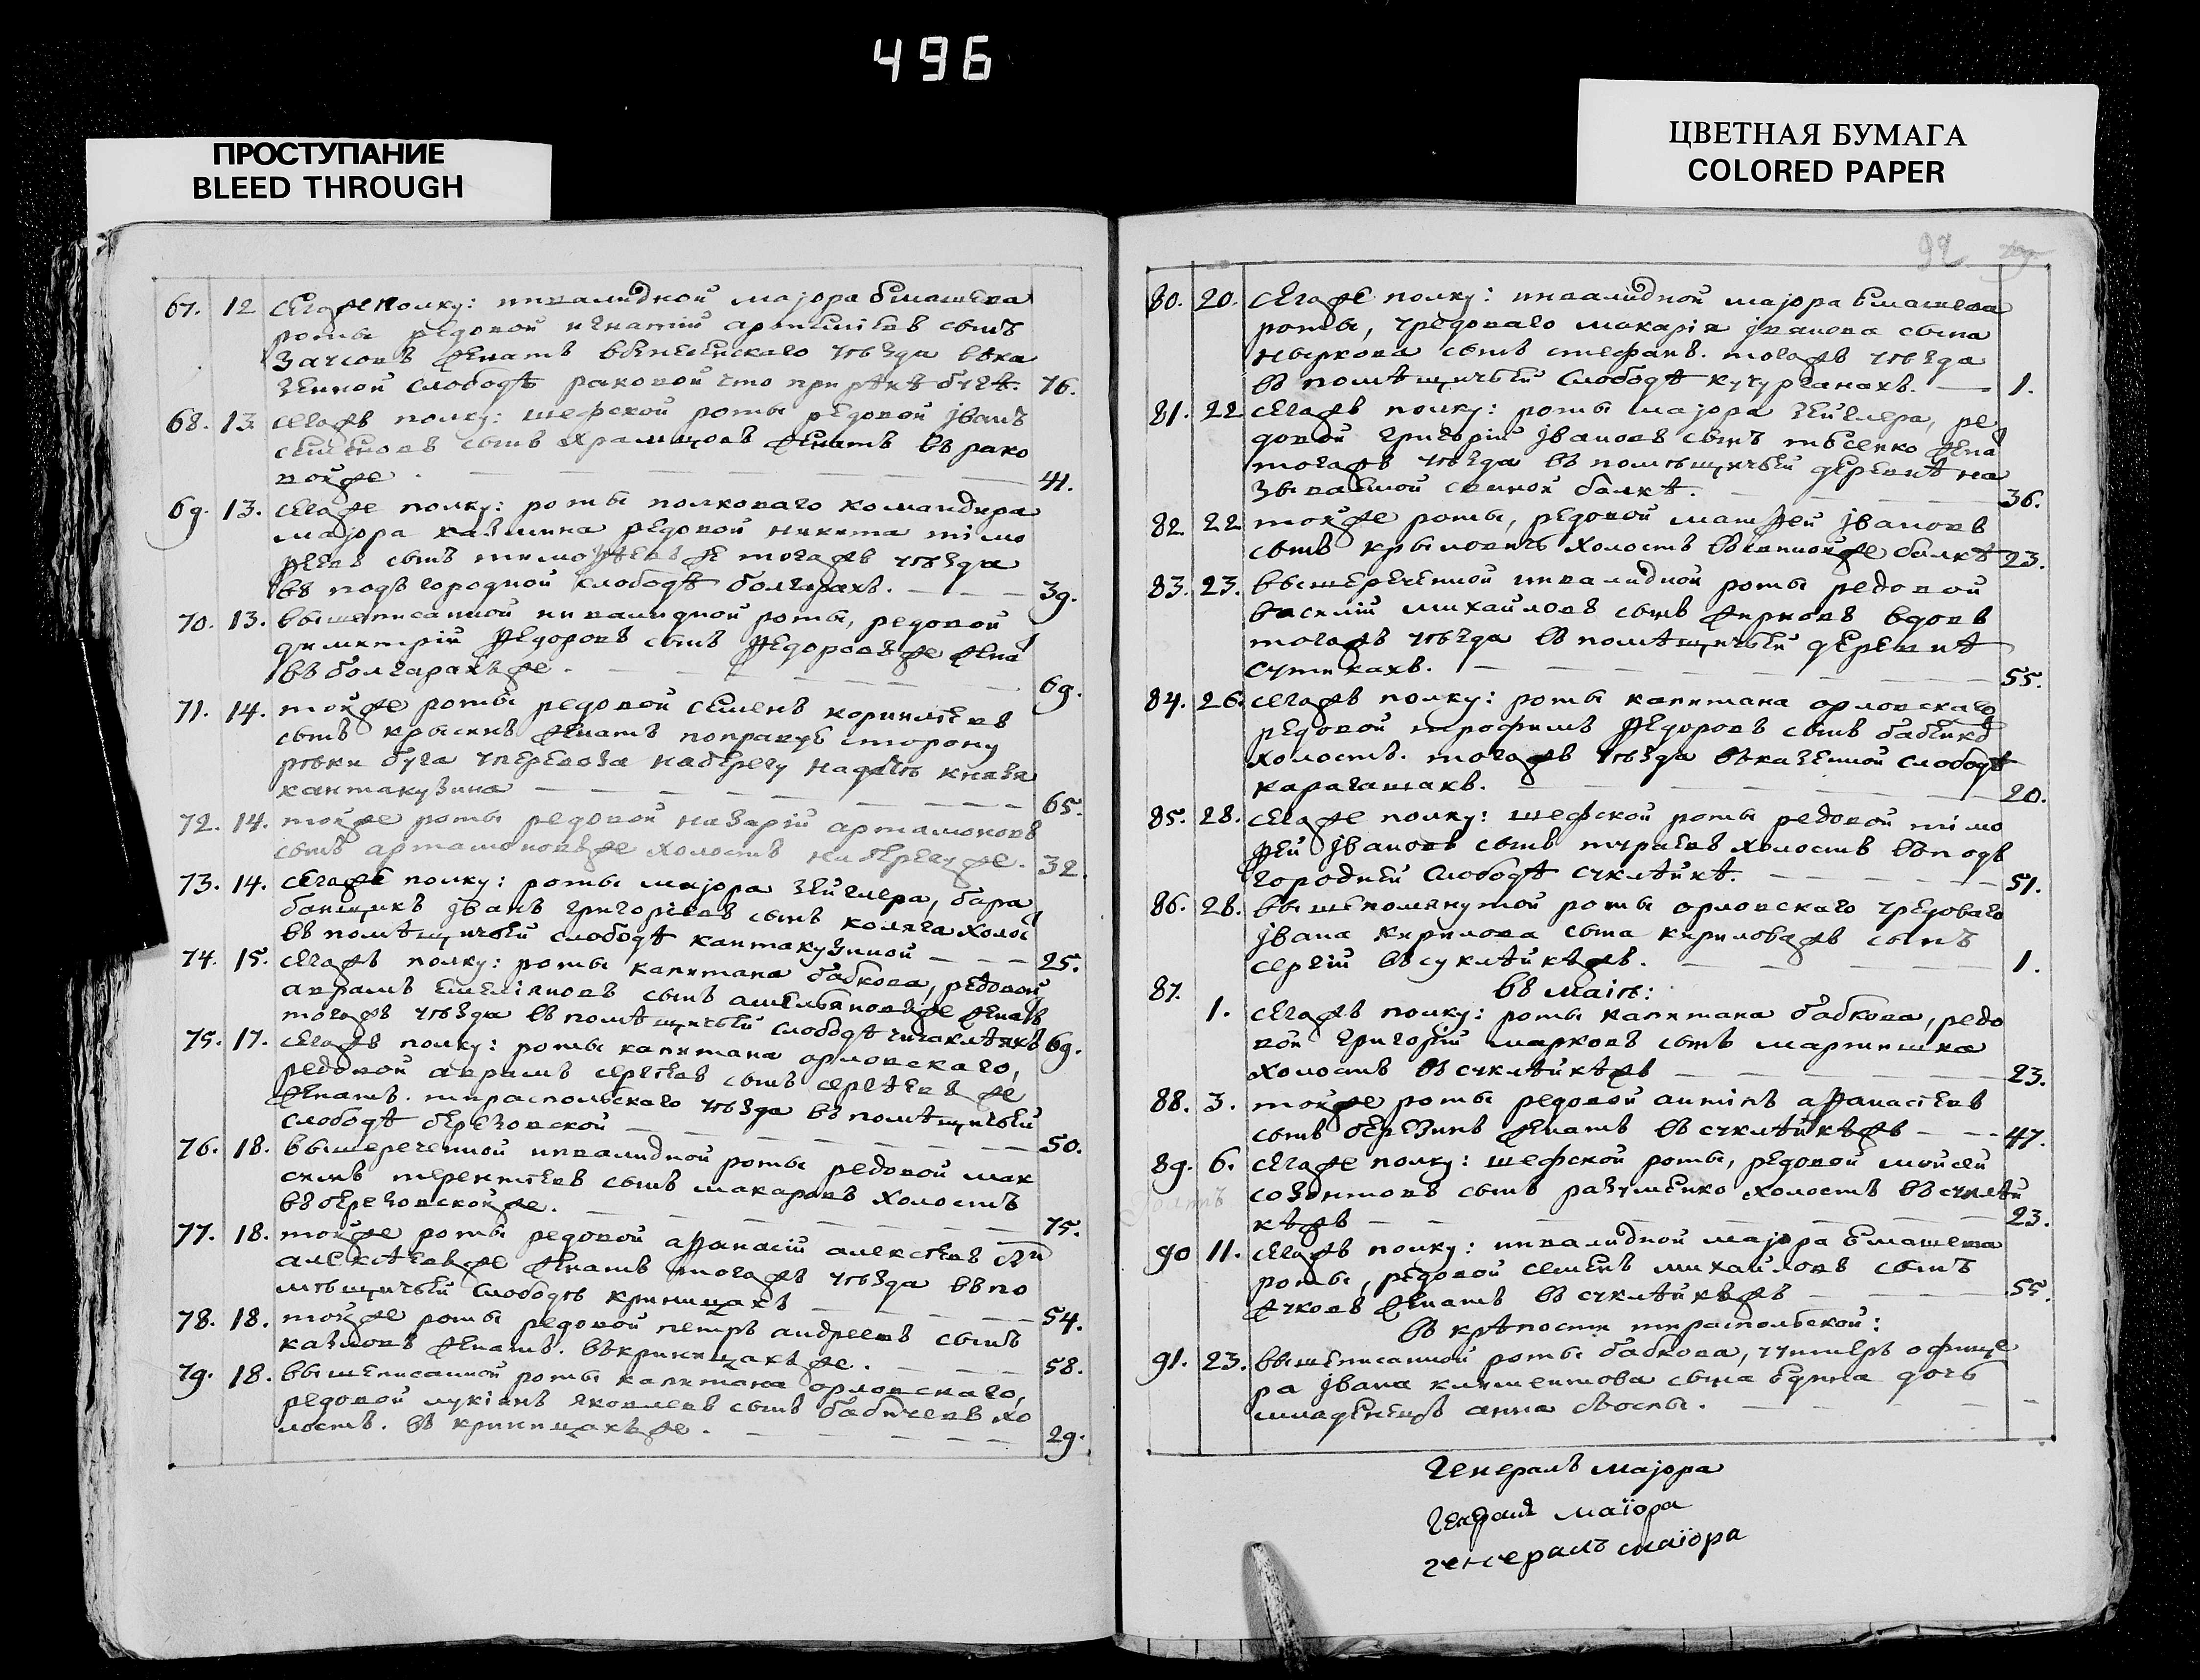 496
ПРОСТУПАНИЕ
BLEED THROUGH
ЦВЕТНАЯ БУМАГА
COLORED PAPER
67. 12 сегоже полку: инвалидной маіора Емашева
роты редовой игнатій артемієвъ сынъ
женатъ вѣнесенскаго уѣзда вѣка
зенной слободѣ раковой что при рѣкѣ бугѣ. 76.
68. 13 сегожъ полку: шефской роты редовой іванъ
семеновъ сынъ храмцовъ женатъ въ рако
войже 41.
69. 13. сегоже полку: роты полковаго командира
маіора казмина редовой никита тімо
ѳеевъ сынъ тимоѳеевъ же тогожъ уѣзда
въ подъ городной слободѣ болгарахъ. 39.
70. 13. вышеписанной инвалидной роты, редовой
димитрій ѳедоровъ сынъ ѳедоровъже жена
въ болгарахъже. 69.
71. 14. тойже роты редовой семенъ корнилїевъ
сынъ крысинъ женатъ поправую сторону
рѣки буга уперевоза наберегу надачѣ князя
кантакузина 65.
72. 14. тойже роты редовой назарій артамоновъ
сынъ артамоновъже холостъ наберегуже. 32.
73. 14. сегоже полку: роты маіора зейглера, бара
банщикъ іванъ григорїевъ сынъ коляга холос
въ помѣщичьей слободѣ кантакузиной 25.
74. 15. сегожъ полку: роты капитана бабкова, редовой
аврамъ емелїановъ сынъ амельяновъже женатъ
тогожъ уѣзда въ помѣщичьей слободѣ чичаклѣякъ 69.
75. 17. сегожъ полку: роты капитана орловскаго,
редовой аврамъ сергїевъ сынъ сергѣевъ же
женатъ. тираспольскаго уѣзда въ помѣщичьей
слободѣ березовской 50.
76. 18. вышереченной инвалидной роты редовой мак
симъ терентїевъ сынъ макаровъ холостъ
въ березовскойже. 75.
77. 18. тойже роты редовой аѳанасій алексїевъ сын
алексѣевъже женатъ тогожъ уѣзда въ по
мѣщичьей слободѣ криницахъ 54.
78. 18. тойже роты редовой петръ андреевъ сынъ
казмовъ женатъ. въкриницахъже. 58.
79. 18. вышеписанной роты капитана орловскаго,
редовой лукіанъ яковлевъ сынъ бабичевъ хо
лостъ. въ криницахъже. 29.
92
80. 20. сегоже полку: инвалидной маіора Емашева
роты, уредоваго макарія іванова сына
ныркова сынъ стефанъ. тогожъ уѣзда
въ помѣщичьей слободѣ кучурганахъ. 1.
81. 22. сегожъ полку: роты маіора зейглера, ре
довой григорій івановъ сынъ тѣсенко жена
тогожъ уѣзда въ помѣщичьей деревнѣ на
зываемой свиной балкѣ. 36.
82. 22 тойже роты, редовой матѳей івановъ
сынъ крыловичъ холостъ въсвинойже балкѣ 23.
83. 23. вышереченной инвалидной роты редовой
василій михайловъ сынъ жирновъ вдовъ
тогожъ уѣзда въ помѣщичьей деревнѣ
сутикахъ. 55.
84. 26. сегожъ полку: роты капитана орловскаго
редовой трофимъ ѳедоровъ сынъ бабенко
холостъ. тогожъ уѣзда въказенной слободѣ
карагашахъ. 20.
85. 28. сегоже полку: шефской роты редовой тімо
ѳей івановъ сынъ тураевъ холостъ въподъ
городней слободѣ суклѣйкѣ. 51.
86. 28. вышепомянутой роты орловскаго уредоваго
івана кирилова сына кириловажъ сынъ
сергій въсуклѣйкѣжъ. 1.
87. въ маїѣ:
1. сегожъ полку: роты капитана бабкова, редо
вой григорій марковъ сынъ мартишка
холостъ въ суклѣйкѣжъ 23.
88. 3. тойже роты редовой антіпъ аѳанасїевъ
сынъ березинъ женатъ въ суклѣйкѣжъ 47.
89. 6. сегоже полку: шефской роты, редовой мойсей
созонтовъ сынъ разуменко холостъ въ суклѣй
кѣжъ 23.
90 11. сегожъ полку: инвалидной маіора Емашева
роты, редовой семенъ михайловъ сынъ
жуковъ женатъ въ суклѣйкѣжъ 55.
въ крѣпости тираспольской:
91. 23. вышеписанной роты бабкова, унтеръ офице
ра івана климентова сына Едина дочь
младенецъ анна съоспы. -
Генералъ маіора
Генералъ маіора
генералъ маіора